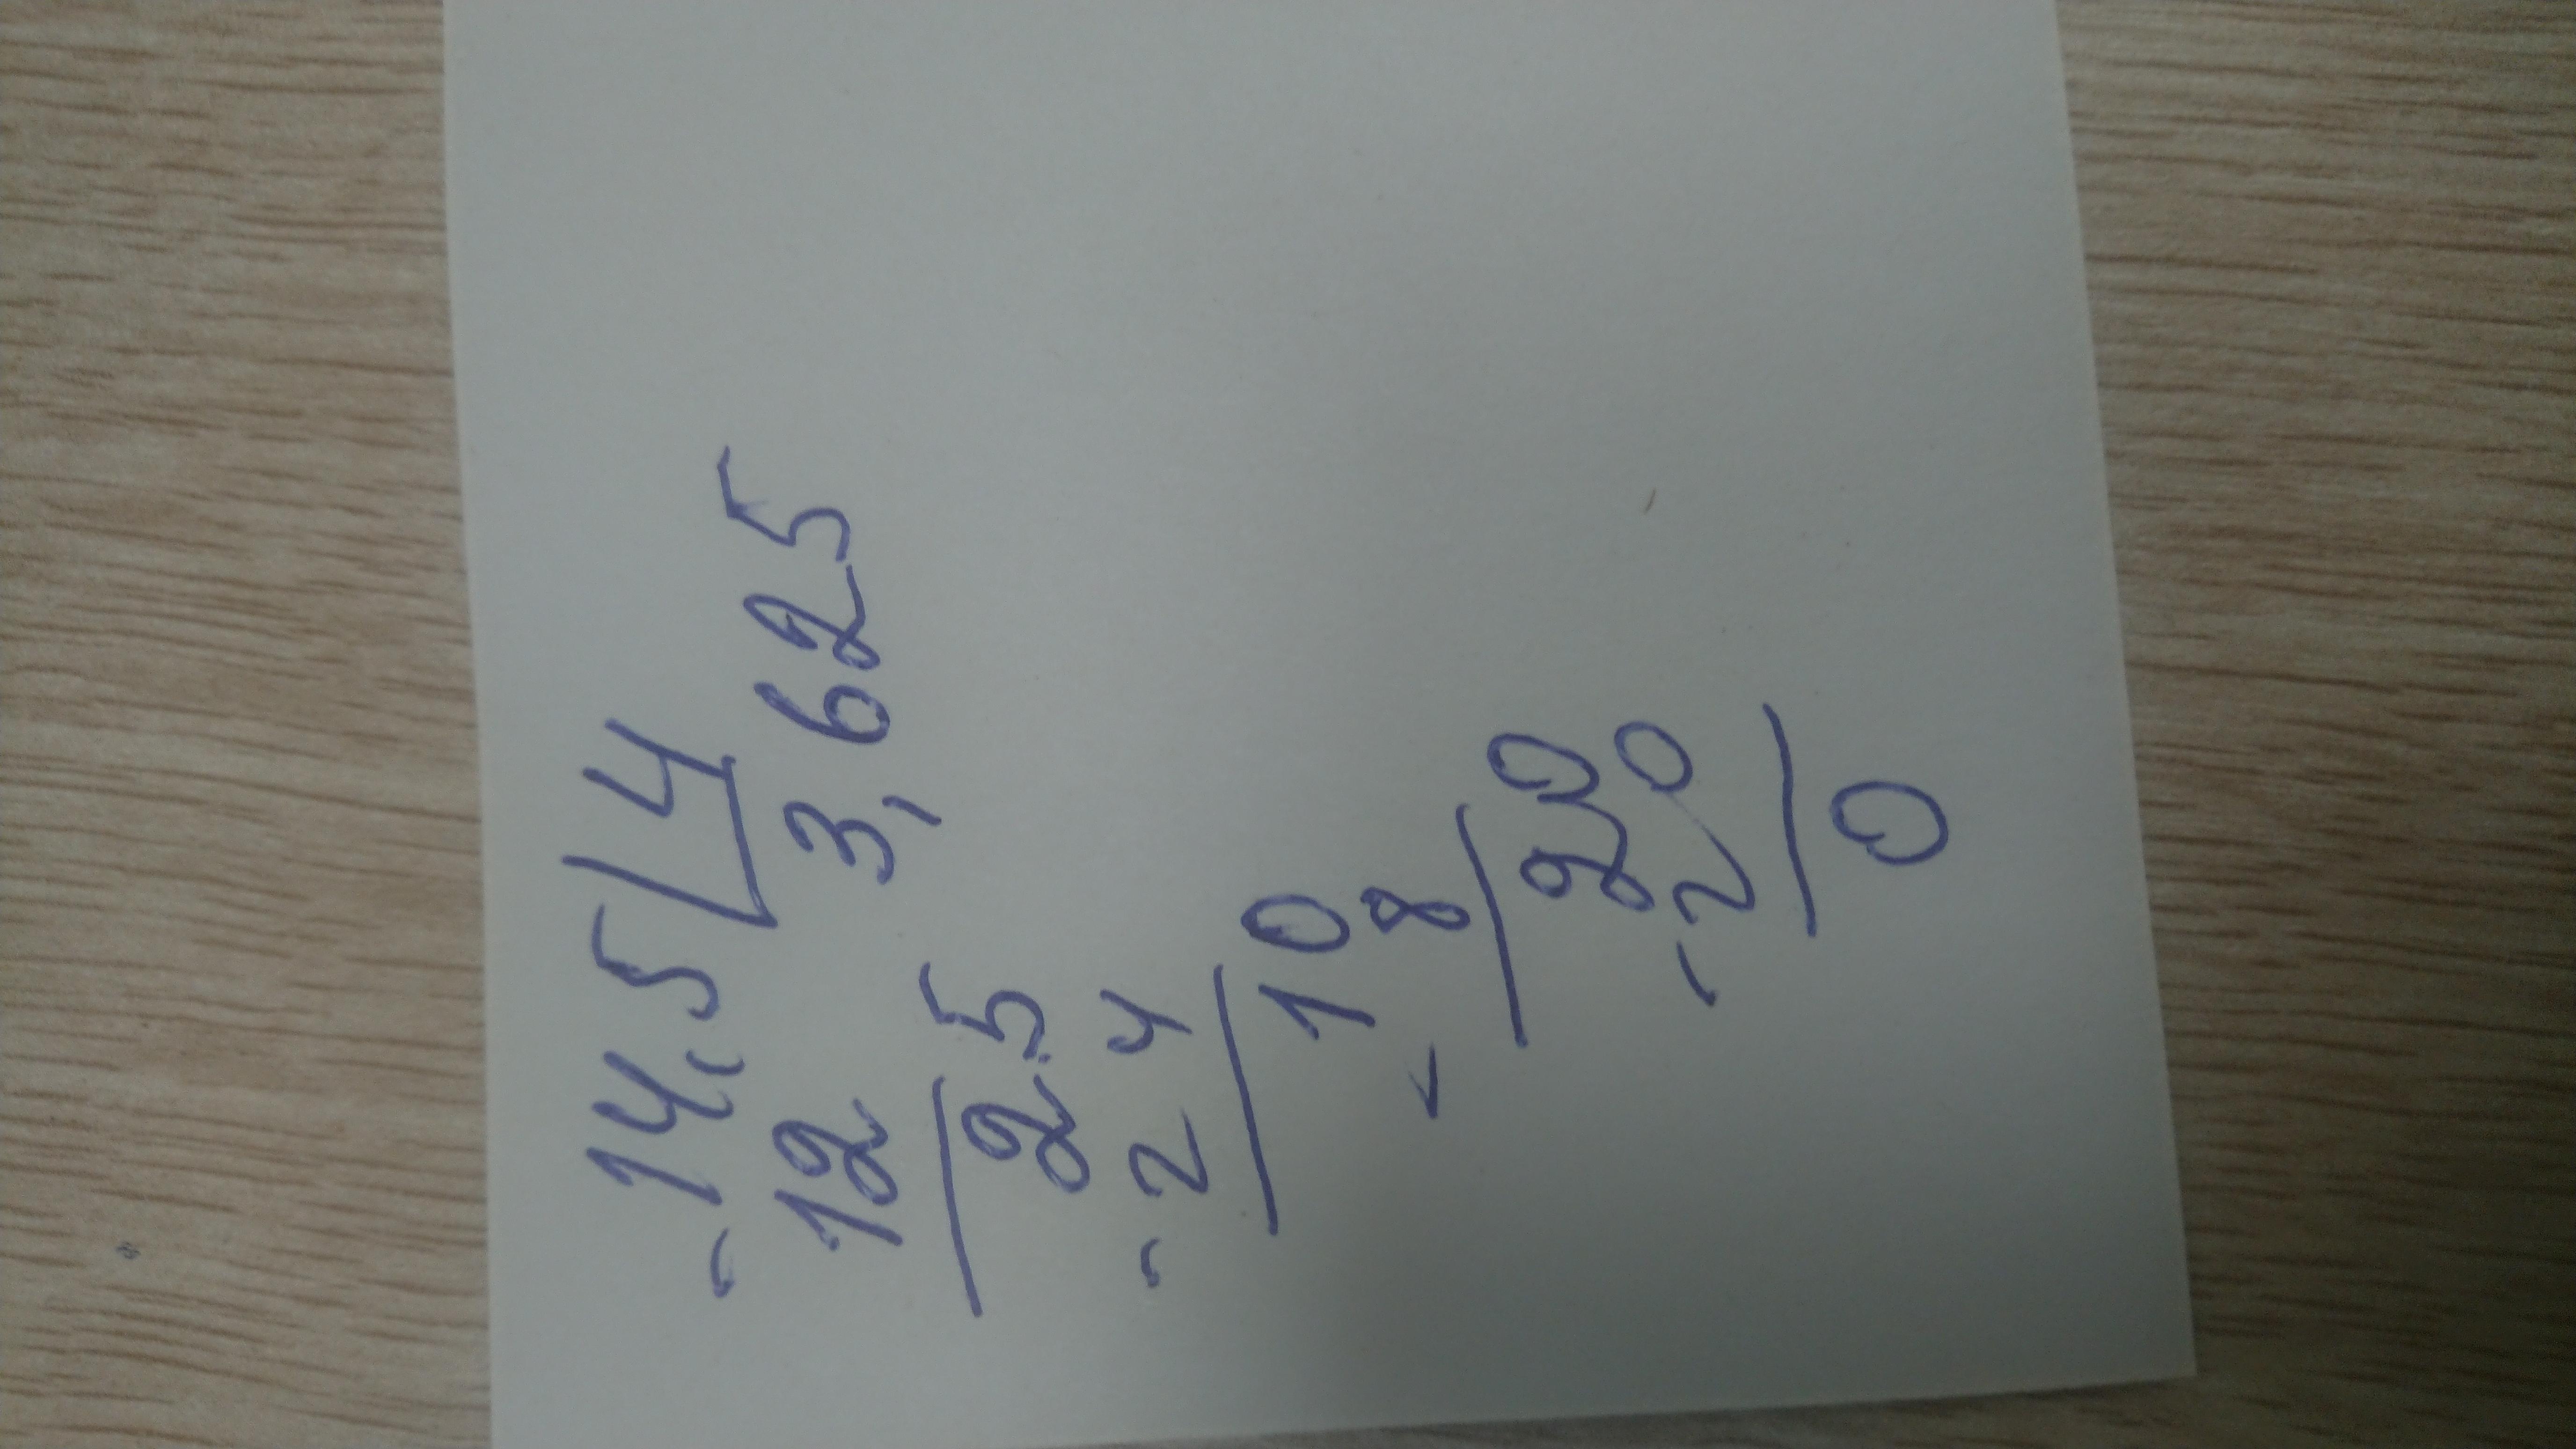 - 14,5 | 4
12 3,625
25
- 24
10
- 8
20
- 20
0